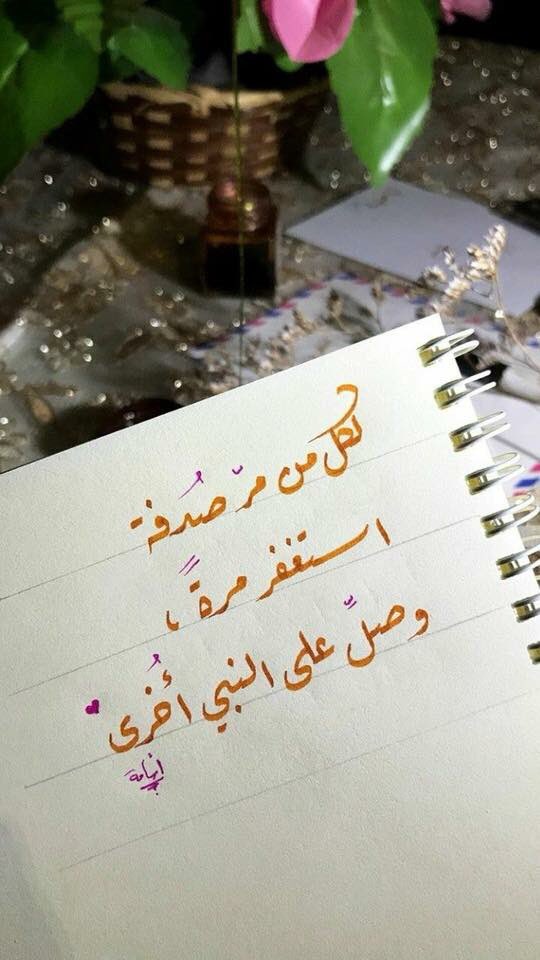 لكل من مرّ صُدفة
استغفر مرةً،
وصلِّ على النبي أُخرى